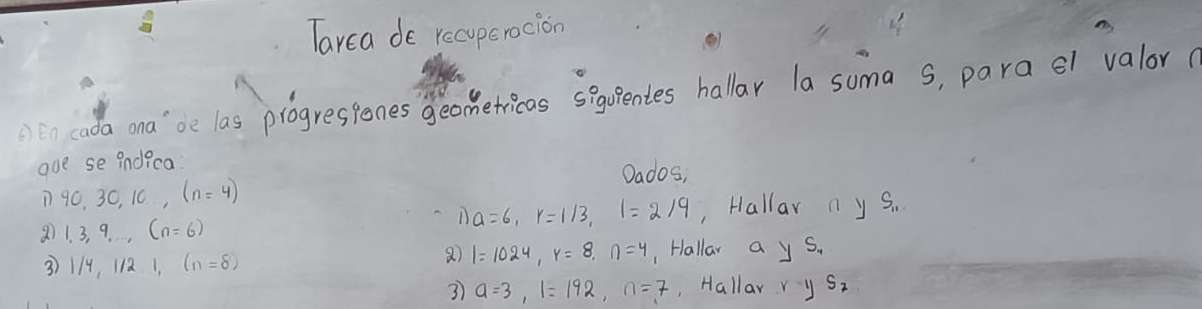 Tarea de recuperación
6) En cada ona de las progresiones geometricas siguientes hallar la suma S, para el valor n
que se indica:
1) 90, 30, 10.., (n=4)
2) 1, 3, 9..., (n=6)
3) 1/4, 1/2 1, (n=8)
Dados;
1) a=6, r=1/3, l=2/9, Hallar n y Sn.
2) l=1024, r=8, n=4, Hallar a y S4.
3) a=3, l=192, n=7, Hallar r y S7